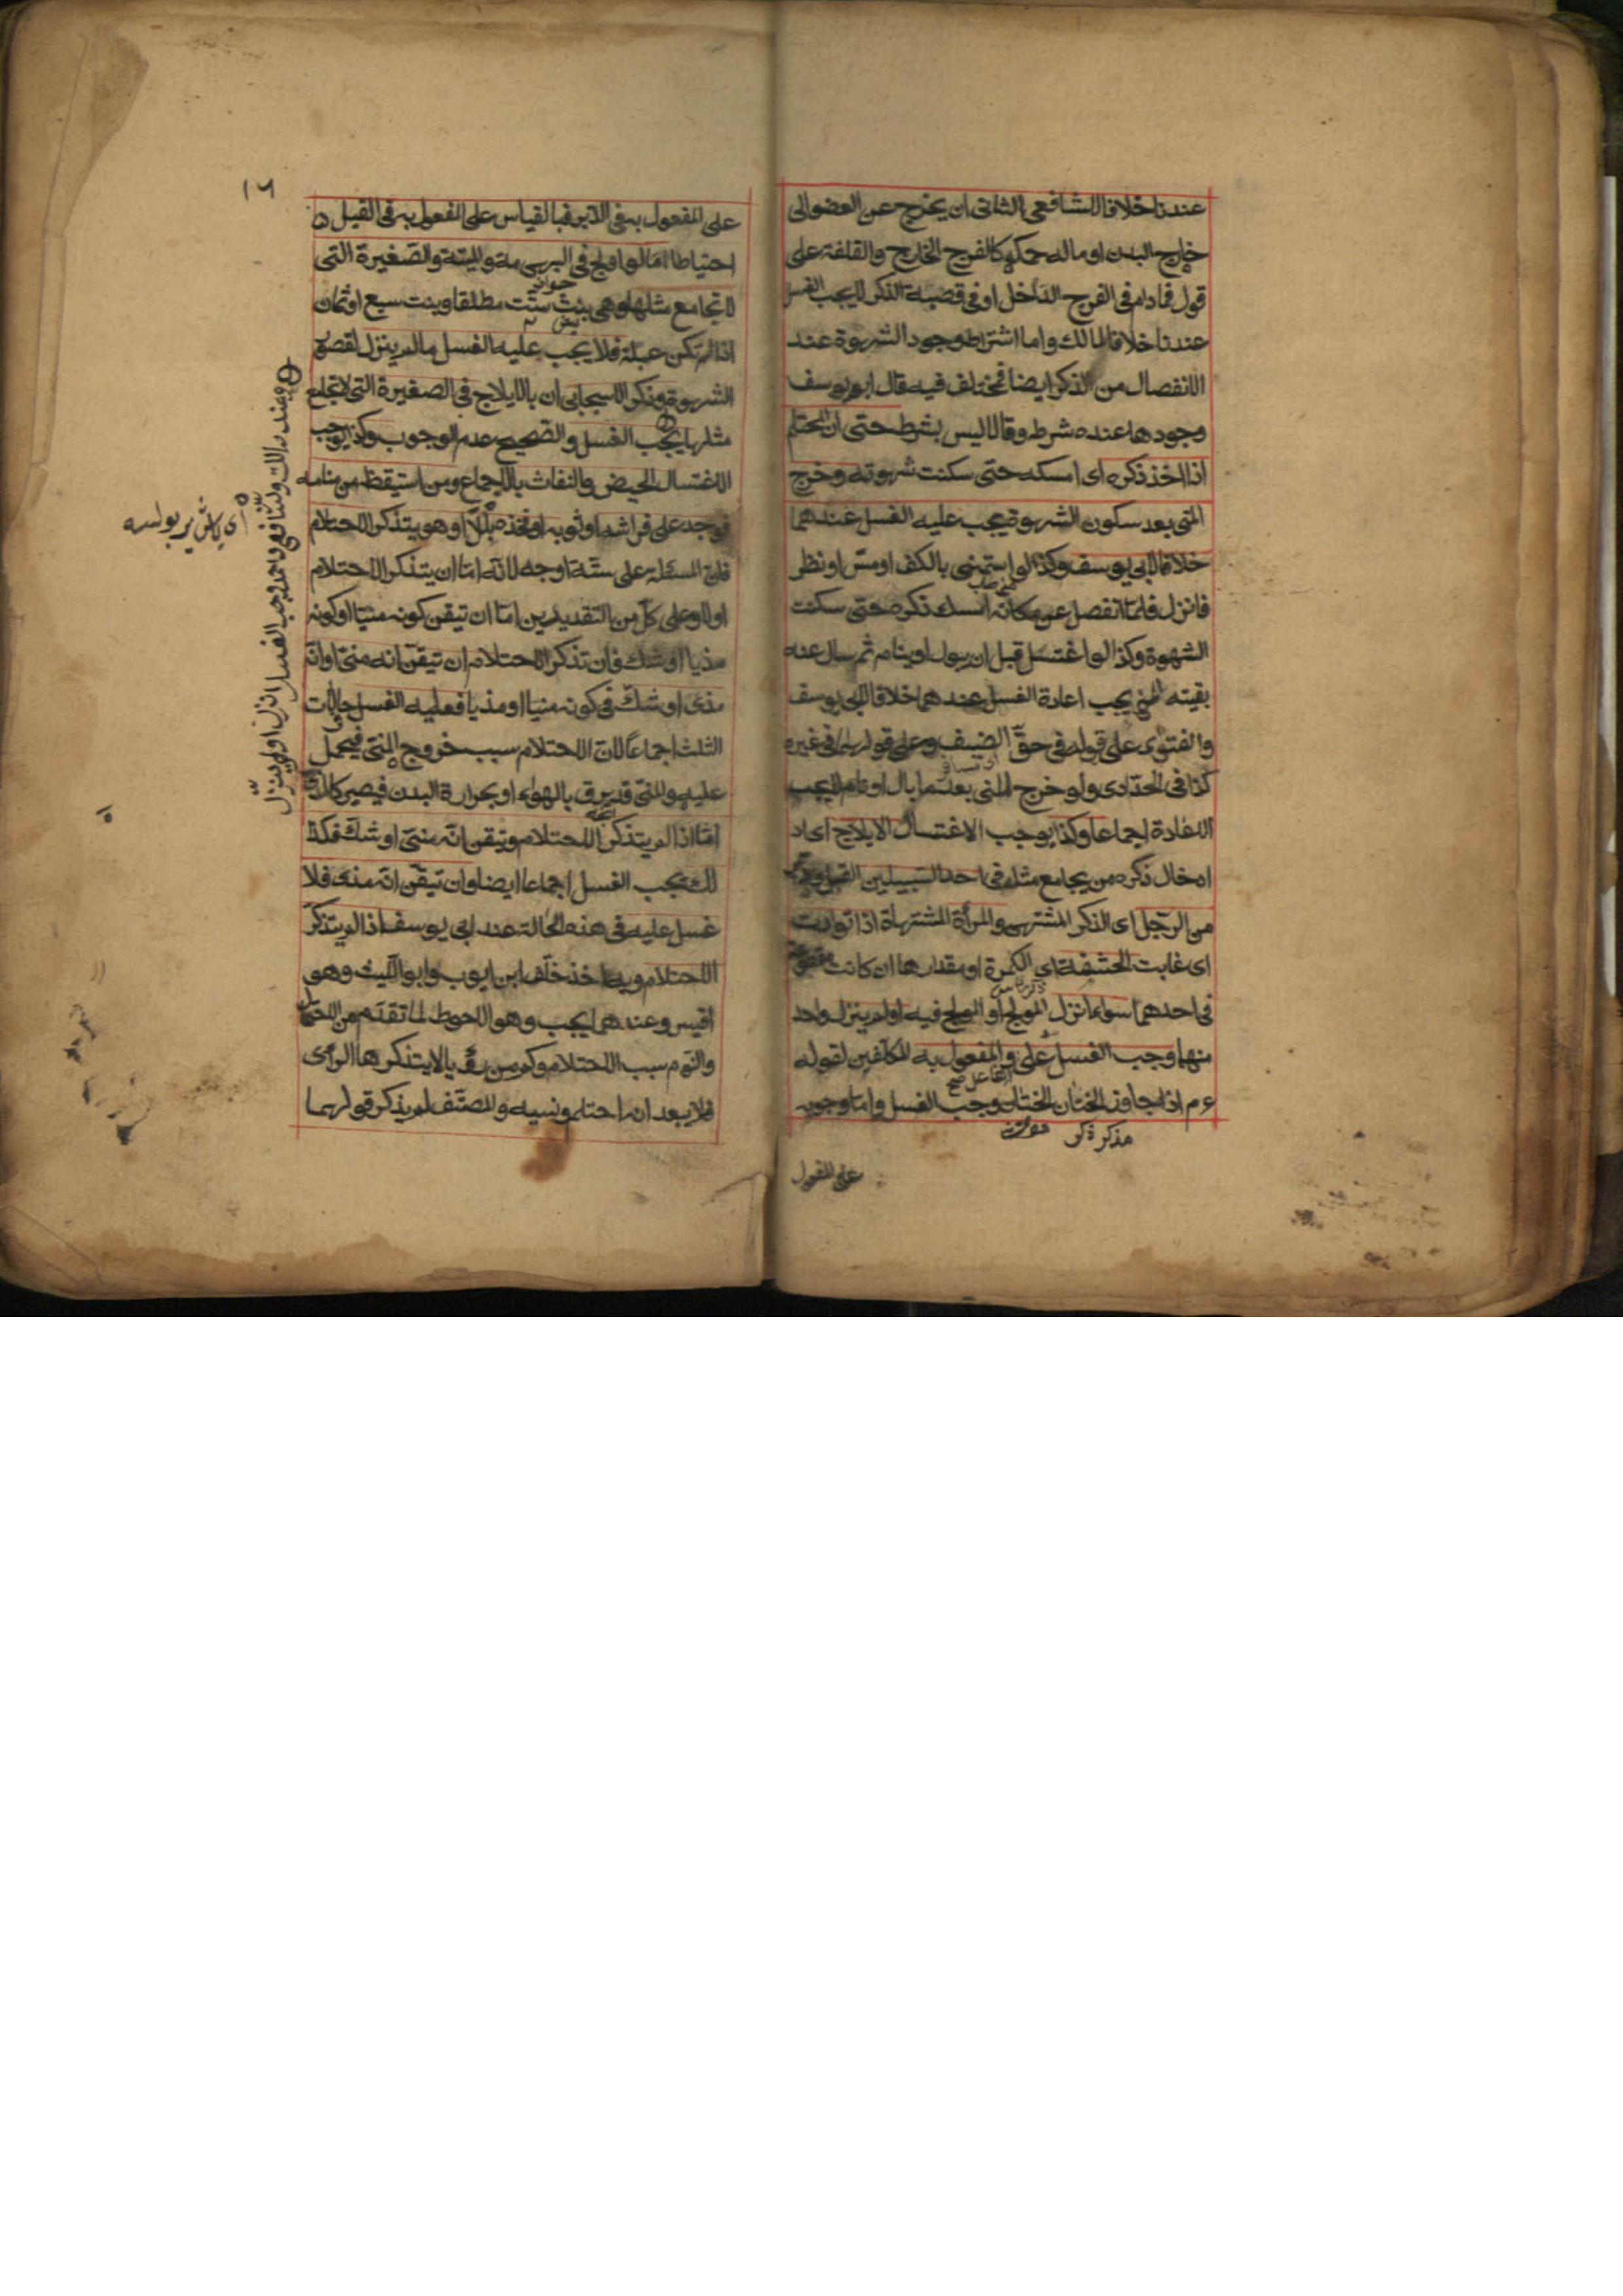 عندنا خلافا للشافعي الثاني ان يخرج عن العضو الى
خارج البدن او ماله حكمه كالفرج الخارج والقلفة على
قول فمادام في الفرج الداخل او في قصبة الذكر لا يجب الغسل
عندنا خلافا لمالك واما اشتراط وجود الشهوة عند
الانفصال من الذكر ايضا فمختلف فيه قال ابو يوسف
وجودها عنده شرط وقالا ليس بشرط حتى ان المحتلم
اذا اخذ ذكره اى امسكه حتى سكنت شهوته وخرج
المنى بعد سكون الشهوة يجب عليه الغسل عندهما
خلافا لابي يوسف وكذا لو استمنى بالكف او مس او نظر
فانزل فلما انفصل عن مكانه امسك ذكره حتى سكنت
الشهوة وكذا لو اغتسل قبل ان يبول او ينام ثم سال عنه
بقيته المنى يجب اعادة الغسل عندهما خلافا لابي يوسف
والفتوى على قوله في حق الضيف وعلى قولهما في غيره
كذا في الحدادى ولو خرج المنى بعد ما بال او نام لا يجب
الاعادة اجماعا وكذا يوجب الاغتسال الايلاج اى اد
ادخال ذكره من يجامع مثله في احد السبيلين القبل والدبر
من الرجل اى الذكر المشتهى والمرأة المشتهاة اذا توارت
اى غابت الحشفة اى الكمرة او مقدارها ان كانت مقطوعة
في احدهما سواء انزل المولج او المولج فيه او لم ينزل واحد
منهما وجب الغسل على والمفعول به المكلفين لقوله
الفاعل صح
ء م اذا جاوز الختان الختان وجب الغسل واما وجوبه
مذكر ذكر مؤنث
على المفعول
١٦
على المفعول به في الدبر فبالقياس على المفعول به في القبل
احتياطا اما لو اولج في البهيمة والميتة والصغيرة التى
لا تجامع مثلها وهي بنت ستت مطلقا وبنت سبع او ثمان
اذا لم تكن عبلة فلا يجب عليه الغسل ما لم ينزل لقصور
الشهوة وذكر الاسبيجابى ان بالايلاج في الصغيرة التى لا تجامع
مثلها يجب الغسل والصحيح عدم الوجوب وكذا يوجب
الاغتسال الحيض والنفاث بالاجماع ومن استيقظ من منامه
فوجد على فراشه او ثوبه او فخذه بللا وهو يتذكر الاحتلام
فان المسئلة على ستة اوجه لانه اما ان يتذكر الاحتلام
اولا وعلى كل من التقديرين اما ان تيقن كونه منيا او كونه
مذيا او شك فان تذكر الاحتلام ان تيقن انه منى او انه
مذى او شك في كونه منيا او مذيا فعليه الغسل
الثلث اجماعا لان الاحتلام سبب خروج المنى فيحمل
عليه والمنى قد يرق بالهواء او بحرارة البدن فيصير كالمذى
اما اذا لم يتذكر الاحتلام وتيقن انه منى او شك فكذ
لك يجب الغسل اجماعا ايضا وان تيقن انه مذى فلا
غسل عليه في هذه الحالة عند ابي يوسف اذا لم يتذكر
الاحتلام وبه اخذ خلف ابن ايوب وابو الليث وهو
اقيس وعندهما يجب وهو الاحوط لما تقدم من الاحتمال
والنوم سبب الاحتلام وكم من رؤيا لا يتذكرها الرأى
فلا يبعد انه احتلم ونسيه والمصنف لم يذكر قولهما
وعند مالك والشافعى واحمد وجب الغسل انزل اولم ينزل